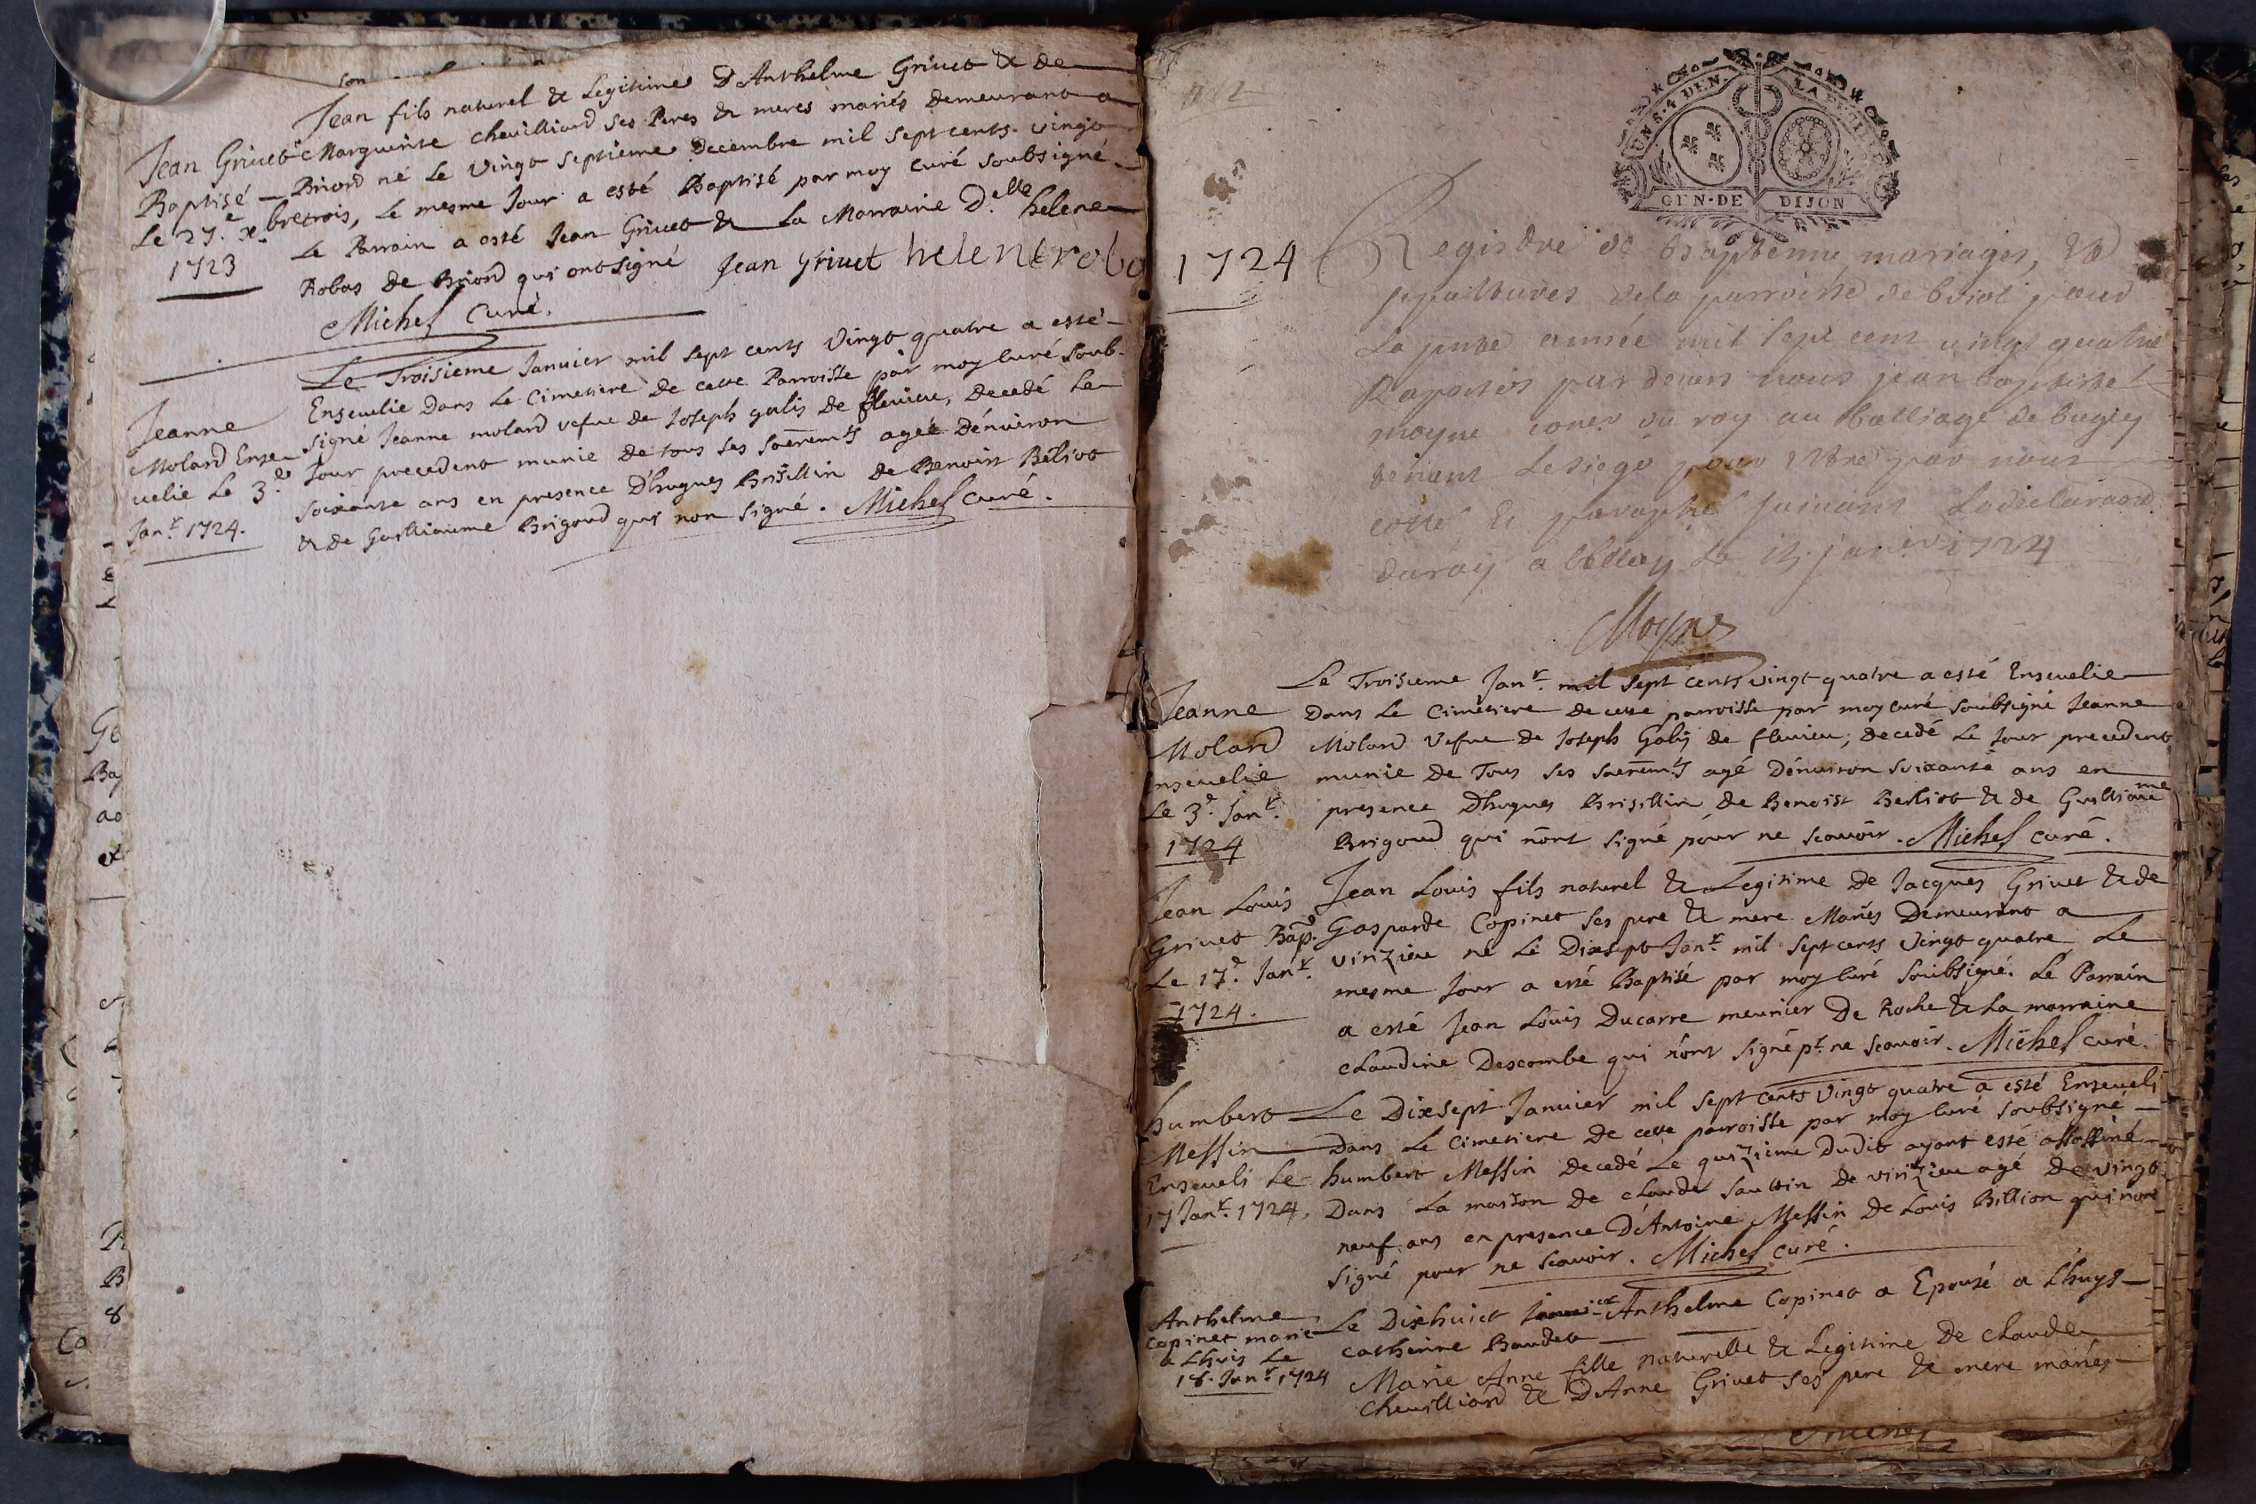 Jean fils naturel & Legitime D'Anthelme Grivet & de
Jean Grivet
Baptisé
Le 27.e xbre
1723
Marguerite chevilliard ses Peres & meres mariés Demeurant a
Briord né Le vingt septieme Decembre mil sept cents vingt
trois, Le mesme Jour a esté Baptisé par moy curé soubsigné
Le Parrain a esté Jean Grivet & La Marraine D.elle helene
Robas de Briord qui ont signé Jean grivet helene robo
Michel Curé.
Le Troisieme Janvier mil sept cents vingt quatre a esté
Jeanne
Molard Ense
velie Le 3.e
Jan.r 1724.
Ensevelie Dans Le Cimetiere De cette Parroisse par moy curé soub-
signé Jeanne molard vefve de Joseph galis de flevieu, Decedé Le
Jour precedent munie de tous ses sacremts agée Dénviron
soixante ans en presence D'hugues Brisillin de Benoist Beliot
& de Guilliaume Brigoud qui non signé. Michel Curé.
UN S. 4 DEN.
GEN. DE DIJON
1724
Registre de baptemme mariages, &
sepultures de la parroisse de briort pour
La pnte année mil sept cent vingt quatre
par devers nous jean baptiste
moyne coner du roy au balliage de bugey
tenant Le siege pour estre par nous
cotté & paraphé suivant La declaraon
du roy a belley Le 15 janvier 1724
Moyne
Jeanne
Molard
ensevelie
Le 3.e Jan.r
1724
Le Troisieme Jan.r mil sept cents vingt quatre a esté Ensevelie
Dans Le Cimetiere de cette parroisse par moy curé soubsigné Jeanne
Molard vefve de Joseph Galis de flevieu; decedé Le Jour precedent
munie De Tous ses sacremts agé Dénviron soixante ans en
presence D'hugues Brisillin de Benoist Berliot & de Guilliaume
Brigoud qui nont signé pour ne scavoir. Michel Curé.
Jean Louis
Grivet Bap.
Le 17.e Jan.r
1724.
Jean Louis fils naturel & Legitime De Jacques Grivet & de
Gasparde Copinet ses pere & mere Mariés Demeurant a
virizieu né Le Dixsept Jan.r mil sept cents vingt quatre Le
mesme Jour a esté Baptisé par moy curé soubsigné. Le Parrain
a esté Jean Louis Ducarre meunier De Roche & La marraine
claudine Descombe qui n'ont signé pr. ne scavoir. Michel Curé.
humbert
Messin
Enseveli Le
17 Jan.r 1724.
Le Dixsept Janvier mil sept cents vingt quatre a esté Enseveli
Dans Le Cimetiere De cette parroisse par moy curé soubsigné
humbert Messin decedé Le quizieme Dudit ayant esté assassiné
Dans La maison de claude saultin de virizieu agé de vingt
neuf ans en presence D'Antoine Messin de Louis Billion qui nont
signé pour ne scavoir. Michel curé.
Anthelme
Copinet marié
a Lhuis Le
18. Jan.r 1724
Le Dixhuict Anthelme Copinet a Epousé a L'huys
catherine Baudet
Marie Anne fille naturelle & Legitime De claude
chevilliard & D'Anne Grivet ses pere & mere mariés